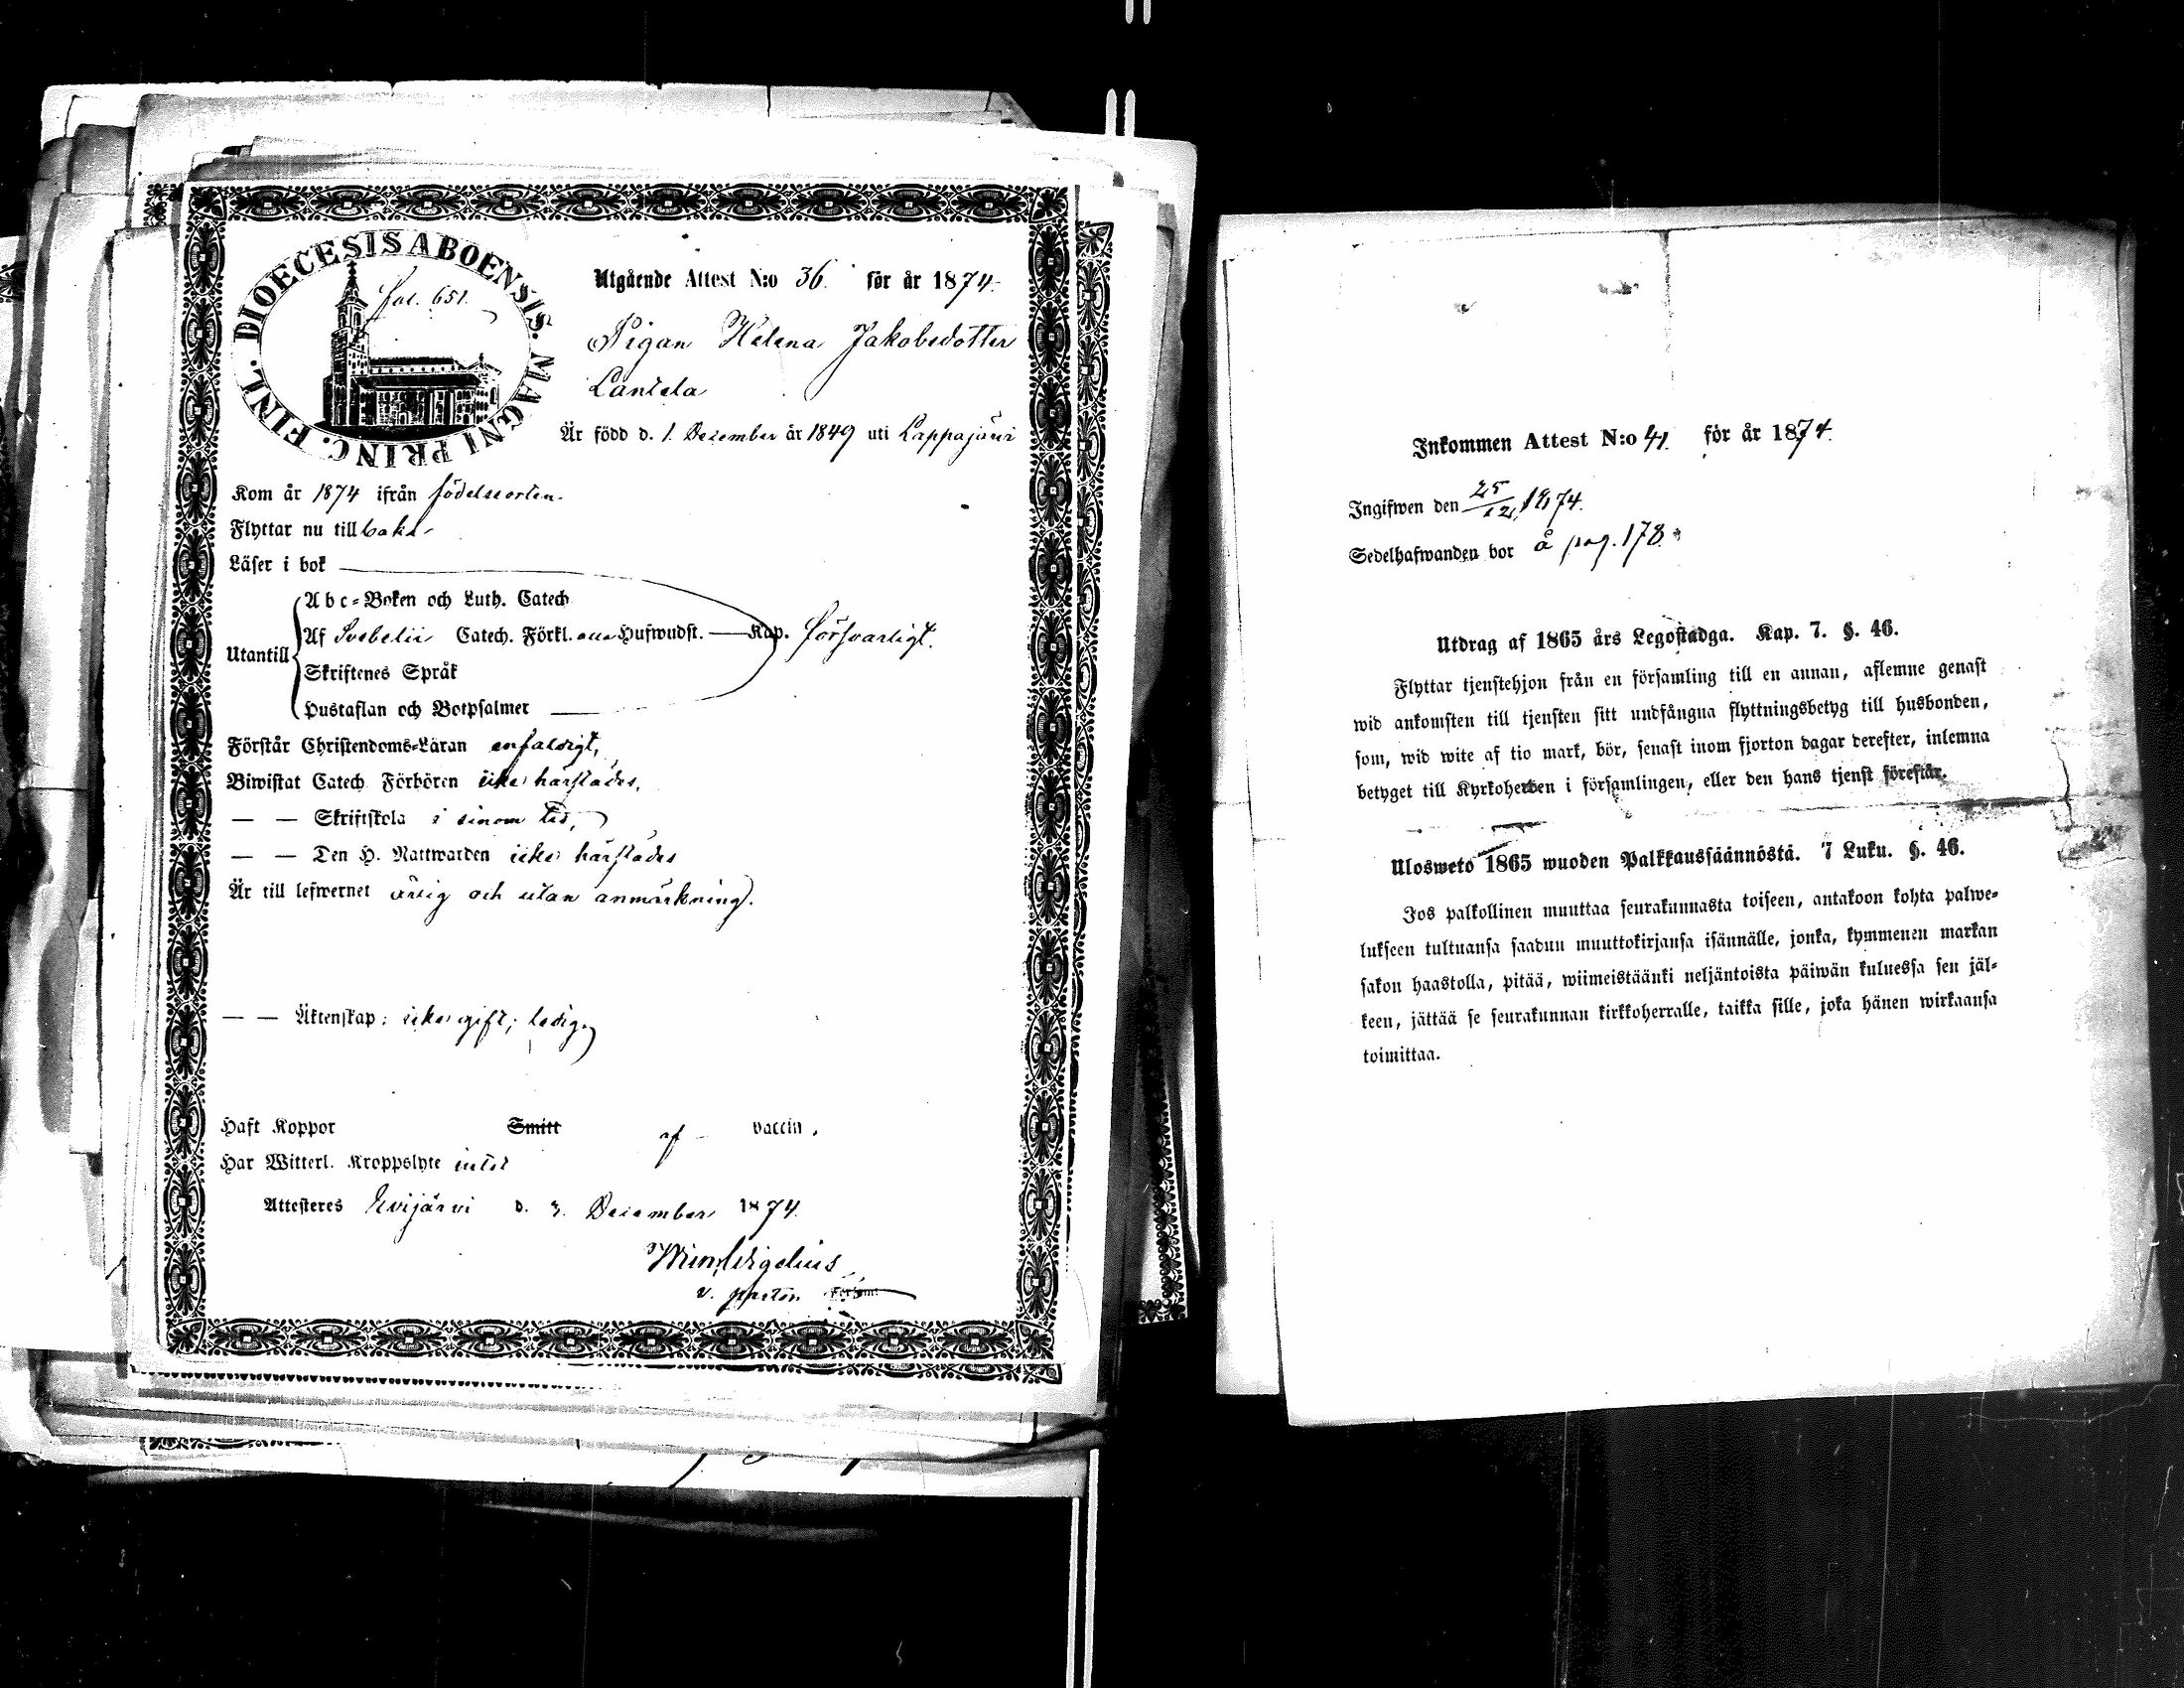 DIOECESIS ABOENSIS. MAGNI PRINC. FINL.
fol. 651.
Utgående Attest N:o 36. för år 1874.
Pigan Helena Jakobsdotter
Lantela
Är född d. 1. December år 1849 uti Lappajärvi
Kom år 1874 ifrån födelseorten.
Flyttar nu tillbaka
Läser i bok
Abc-Boken och Luth. Catech
Utantill
Af Svebelii Catech. Förkl. Hufwudst. — Kap. försvarligt.
Skriftenes Språk
Hustaflan och Botpsalmer
Förstår Christendoms-Läran enfaldigt,
Biwistat Catech Förhören icke härstädes,
— — Skriftskola i sinom tid,
— — Den H. Nattwarden icke härstädes
Är till lefwernet ärlig och utan anmärkning.
— — Äktenskap: icke gift; ledig
Haft Koppor Smitt af vaccin.
Har Witterl. Kroppslyte intet
Attesteres Evijärvi d. 3. December 1874.
v. pastor Försam:
Inkommen Attest N:o 41. för år 1874.
Ingifwen den 25/12 1874.
Sedelhafwanden bor å pag. 178.
Utdrag af 1865 års Legostadga. Kap. 7. §. 46.
Flyttar tjenstehjon från en församling till en annan, aflemne genast
wid ankomsten till tjensten sitt undfångna flyttningsbetyg till husbonden,
som, wid wite af tio mark, bör, senast inom fjorton dagar derefter, inlemna
betyget till Kyrkoherden i församlingen, eller den hans tjenst förestår.
Ulosweto 1865 wuoden Palkkaussäännöstä. 7 Luku. §. 46.
Jos palkollinen muuttaa seurakunnasta toiseen, antakoon kohta palwe-
lukseen tultuansa saadun muuttokirjansa isännälle, jonka, kymmenen markan
sakon haastolla, pitää, wiimeistäänki neljäntoista päiwän kuluessa sen jäl-
keen, jättää se seurakunnan kirkkoherralle, taikka sille, joka hänen wirkaansa
toimittaa.